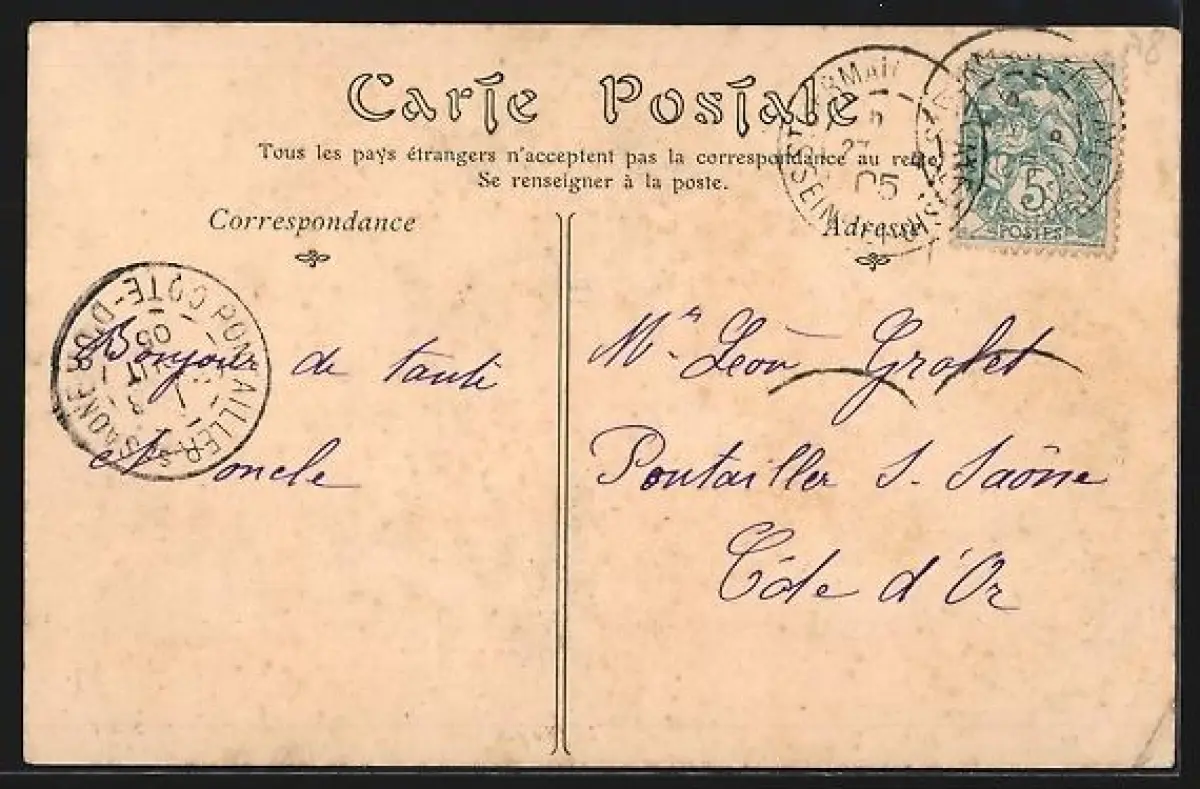 Carte Postale
Tous les pays étrangers n'acceptent pas la correspondance au recto
Se renseigner à la poste.
Correspondance
Adresse
Bonjour de tanti
& oncle
Mr Léon Grafet
Pontailler s. Saône
Côte d'Or
PONTAILLER-S-SAONE
COTE-D'OR
05
ST GERMAIN
27
05
SEINE-ET-OISE
5c
POSTES
A8